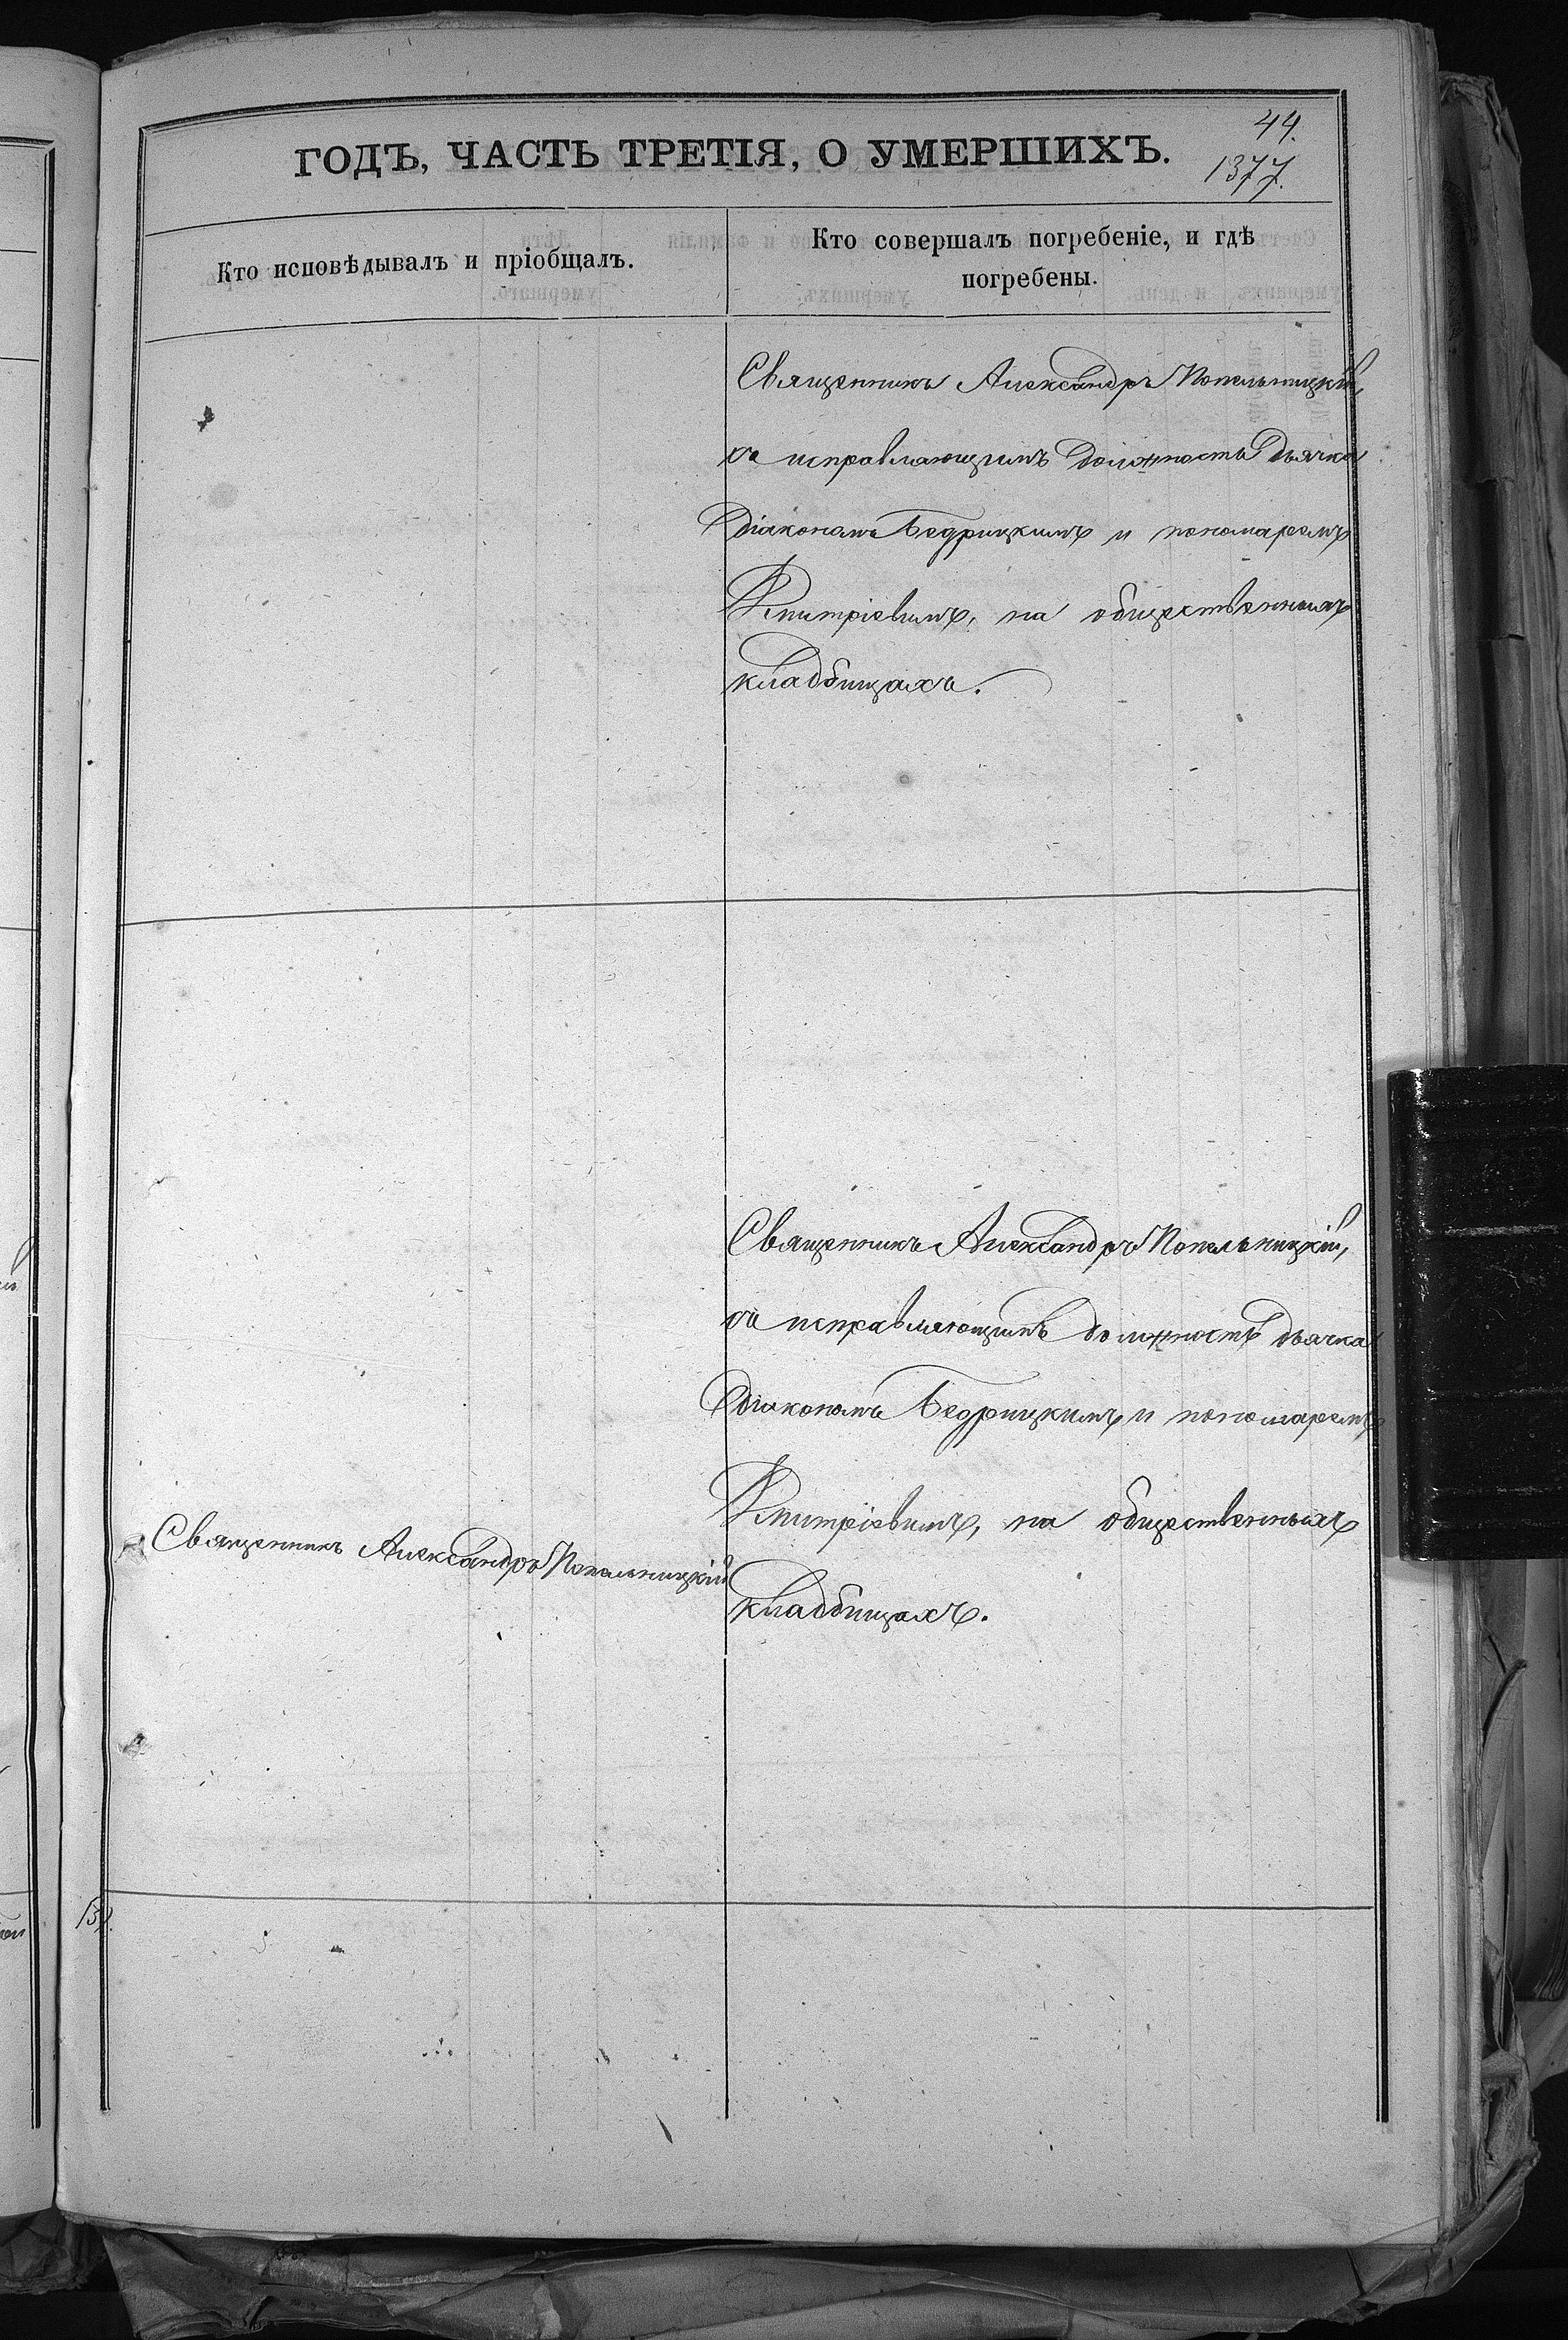 44.
1377.
ГОДЪ, ЧАСТЬ ТРЕТІЯ, О УМЕРШИХЪ.
Кто исповѣдывалъ и пріобщалъ.
Кто совершалъ погребеніе, и гдѣ
погребены.
Священникъ Александръ Попельницкій,
съ исправляющимъ должность дьячка
діакономъ Бедрицкимъ и пономаремъ
Дмитріевымъ, на общественныхъ
кладбищахъ.
Священникъ Александръ Попельницкій,
съ исправляющимъ должность дьячка
діакономъ Бедрицкимъ и пономаремъ
Дмитріевымъ, на общественныхъ
кладбищахъ.
Священникъ Александръ Попельницкій